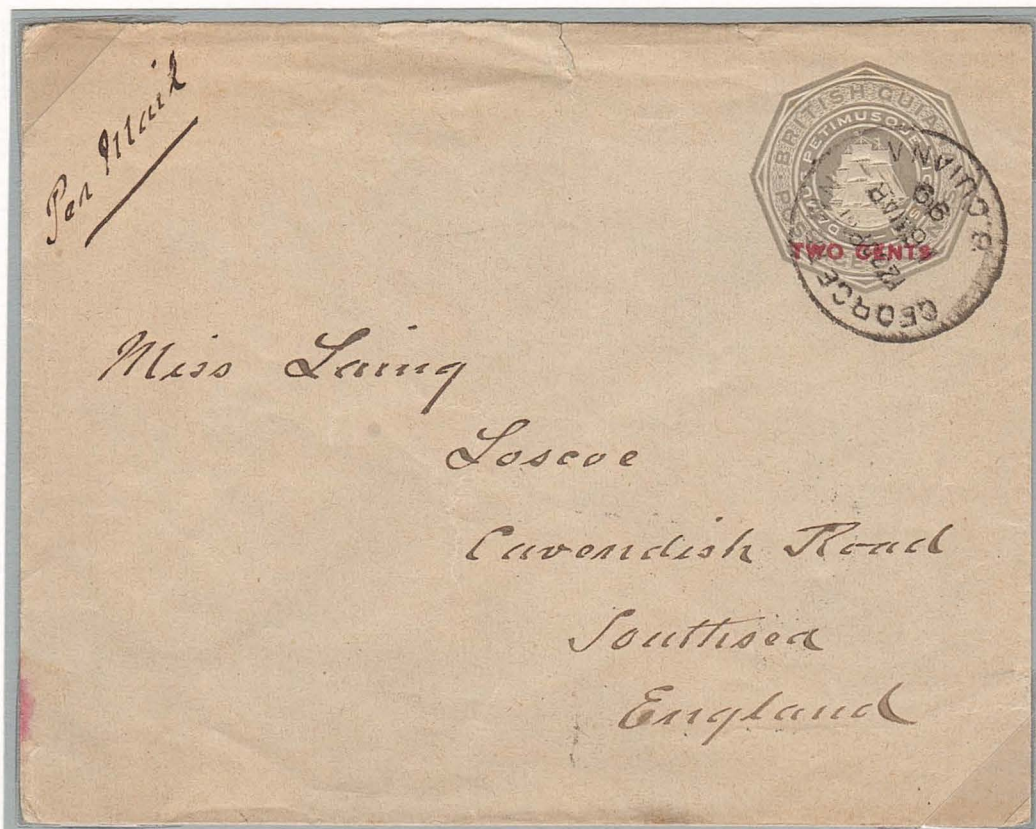 Per Mail
BRITISH GUIANA
DAMUS PETIMUSQUE VICISSIM
POSTAGE
TWO CENTS
GEORGETOWN
B. GUIANA
MR
99
Miss Laing
Loscoe
Cavendish Road
Southsea
England